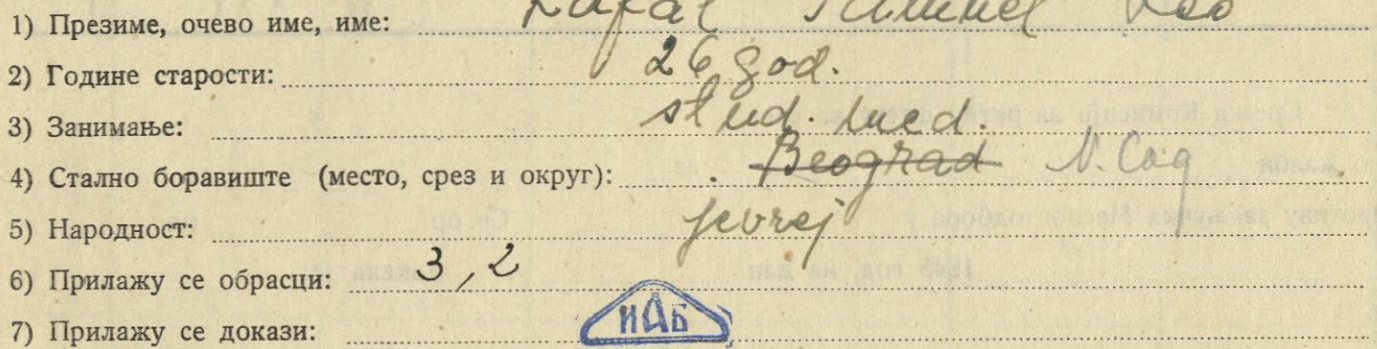 1) Презиме, очево име, име:
2) Године старости: 26 god.
3) Занимање: stud. med.
4) Стално боравиште (место, срез и округ): Beograd N. Сад
5) Народност: jevrej
6) Прилажу се обрасци: 3, 2
7) Прилажу се докази:
ИАБ